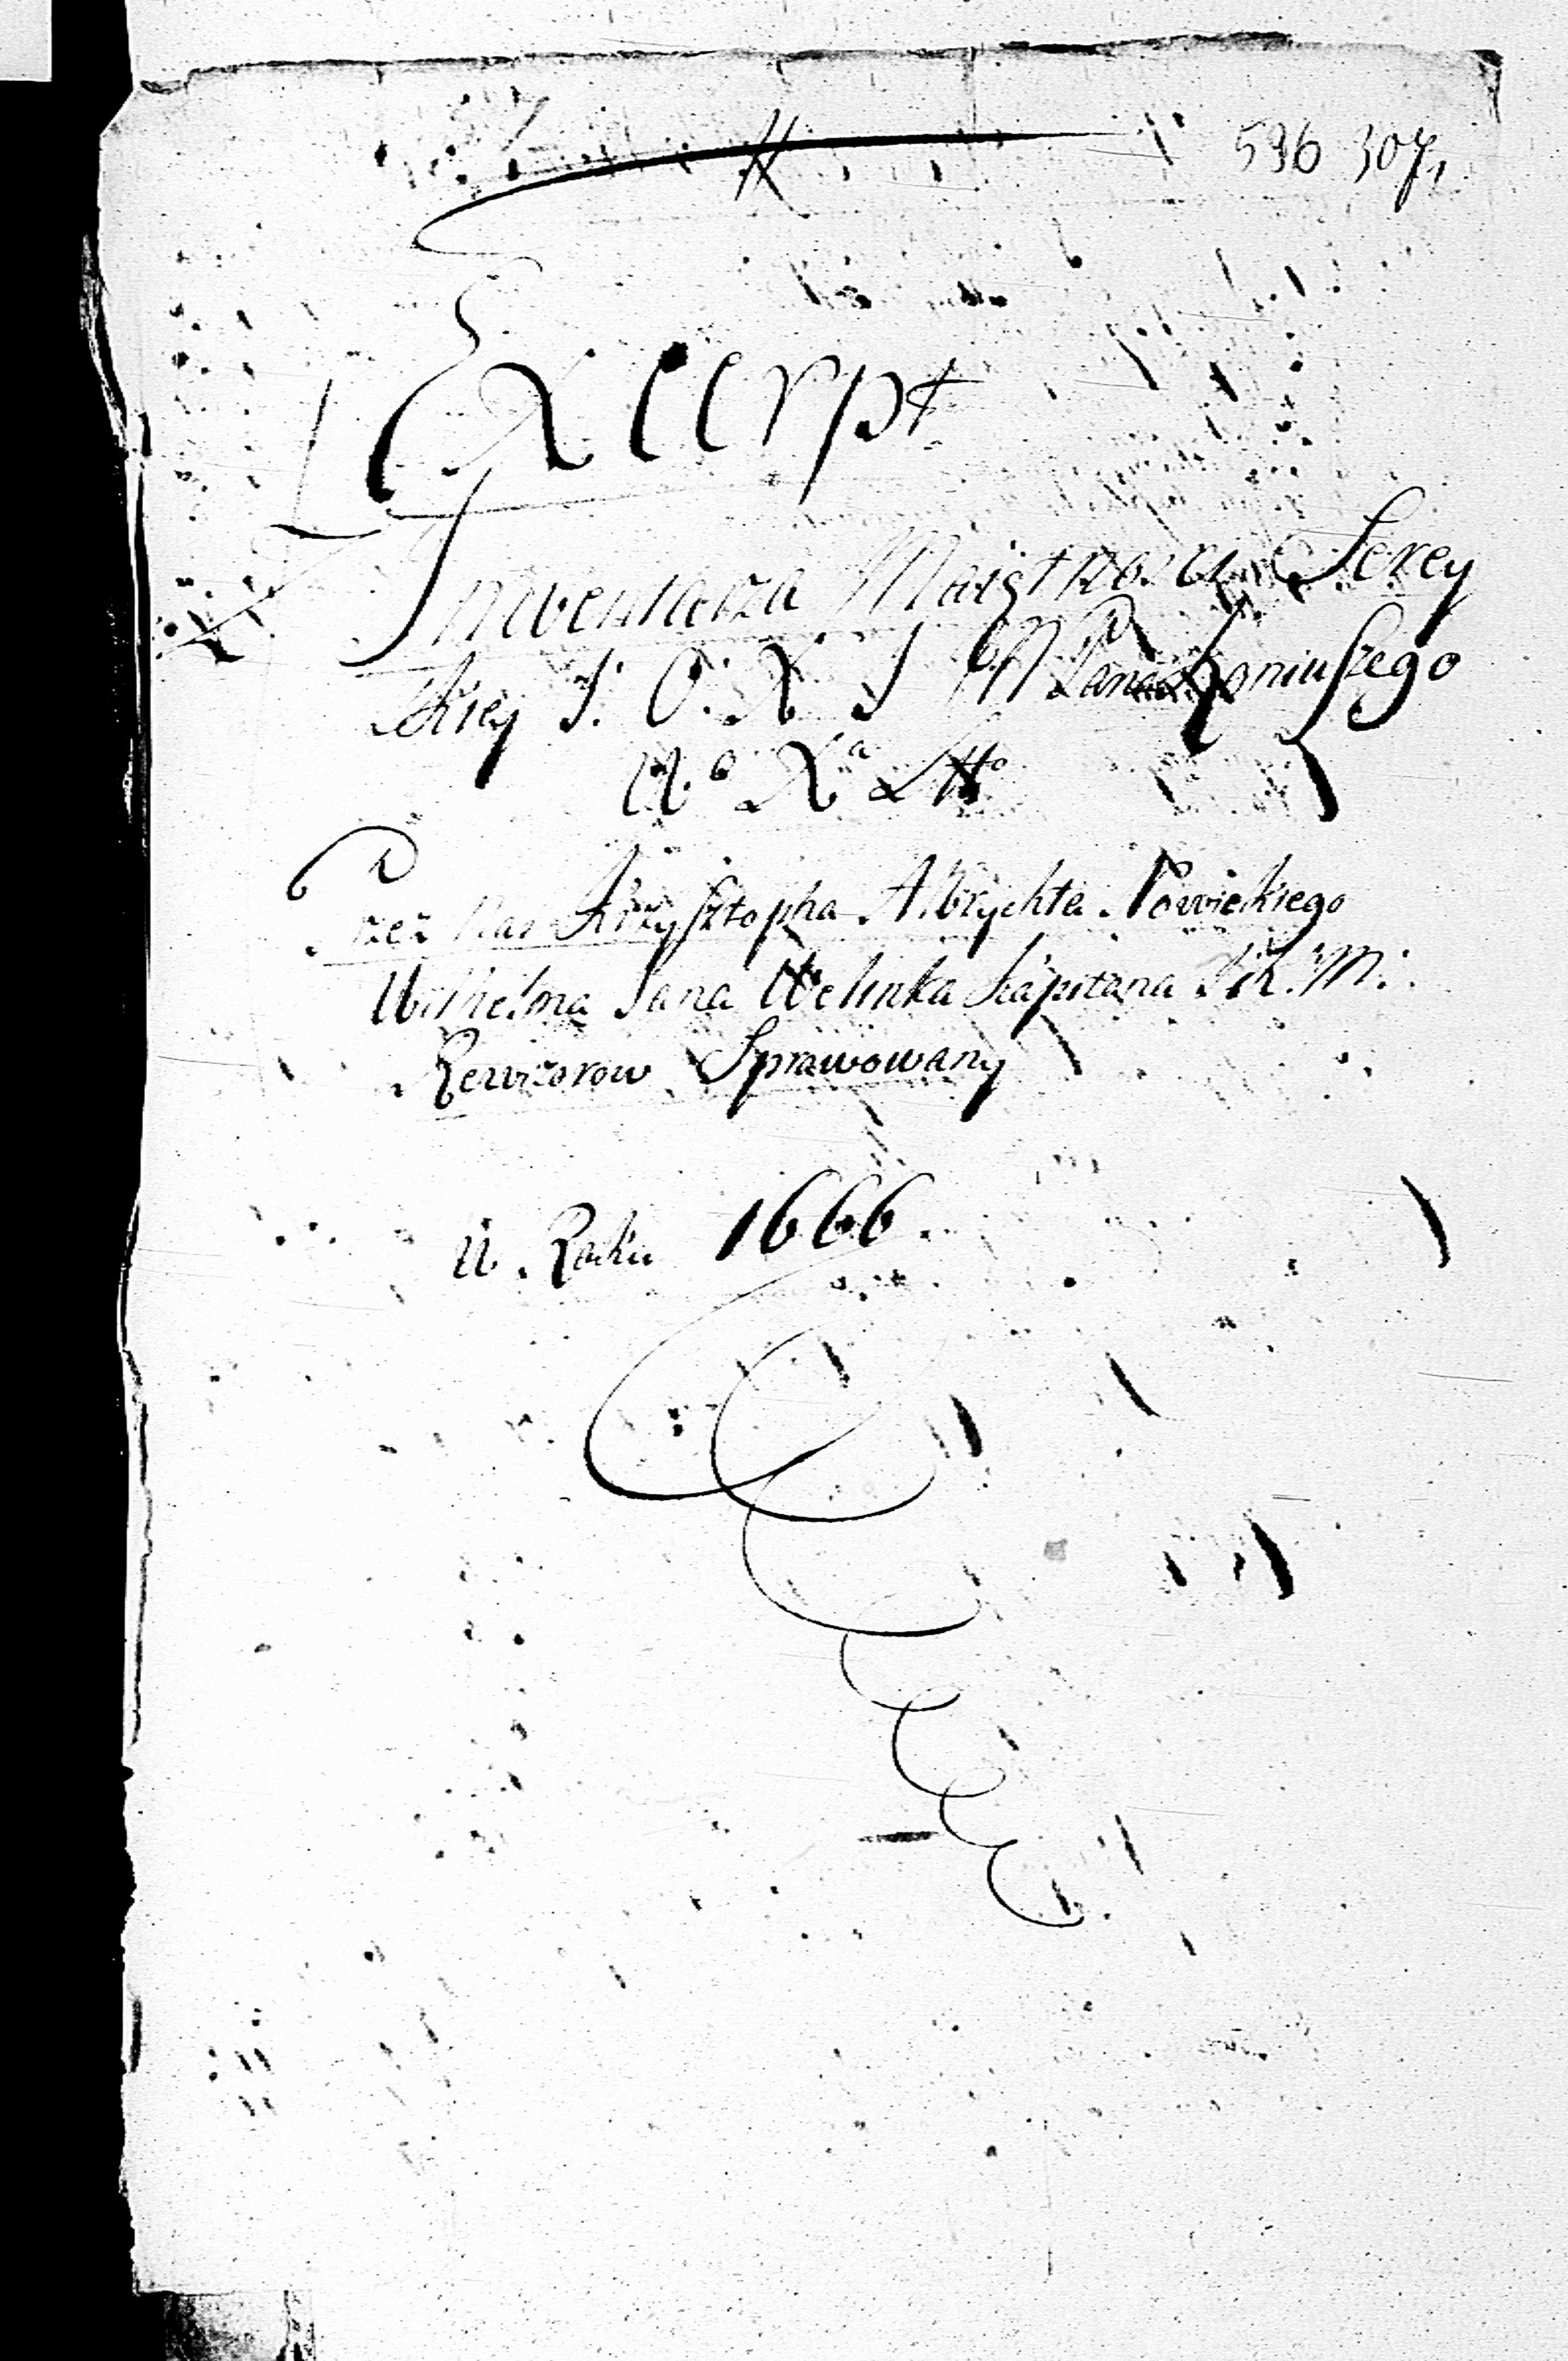 536 307,
Excerpt
Inwentarza Maiętnosci Serey
skiey J. O. X J M Pana Koniuszego
W° Xª Litt°
Przez Nas Krzysztopha Albrychta Nowickiego
Wilhelma Jana Welinka Kapitana JK. M:
Rewizorow Sprawowany
W Roku 1666.